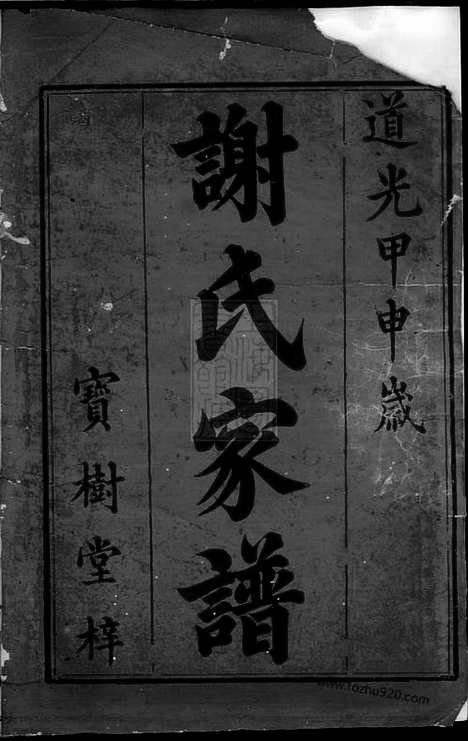 道光甲申歲
謝氏家譜
寶樹堂梓
www.fozhu920.com